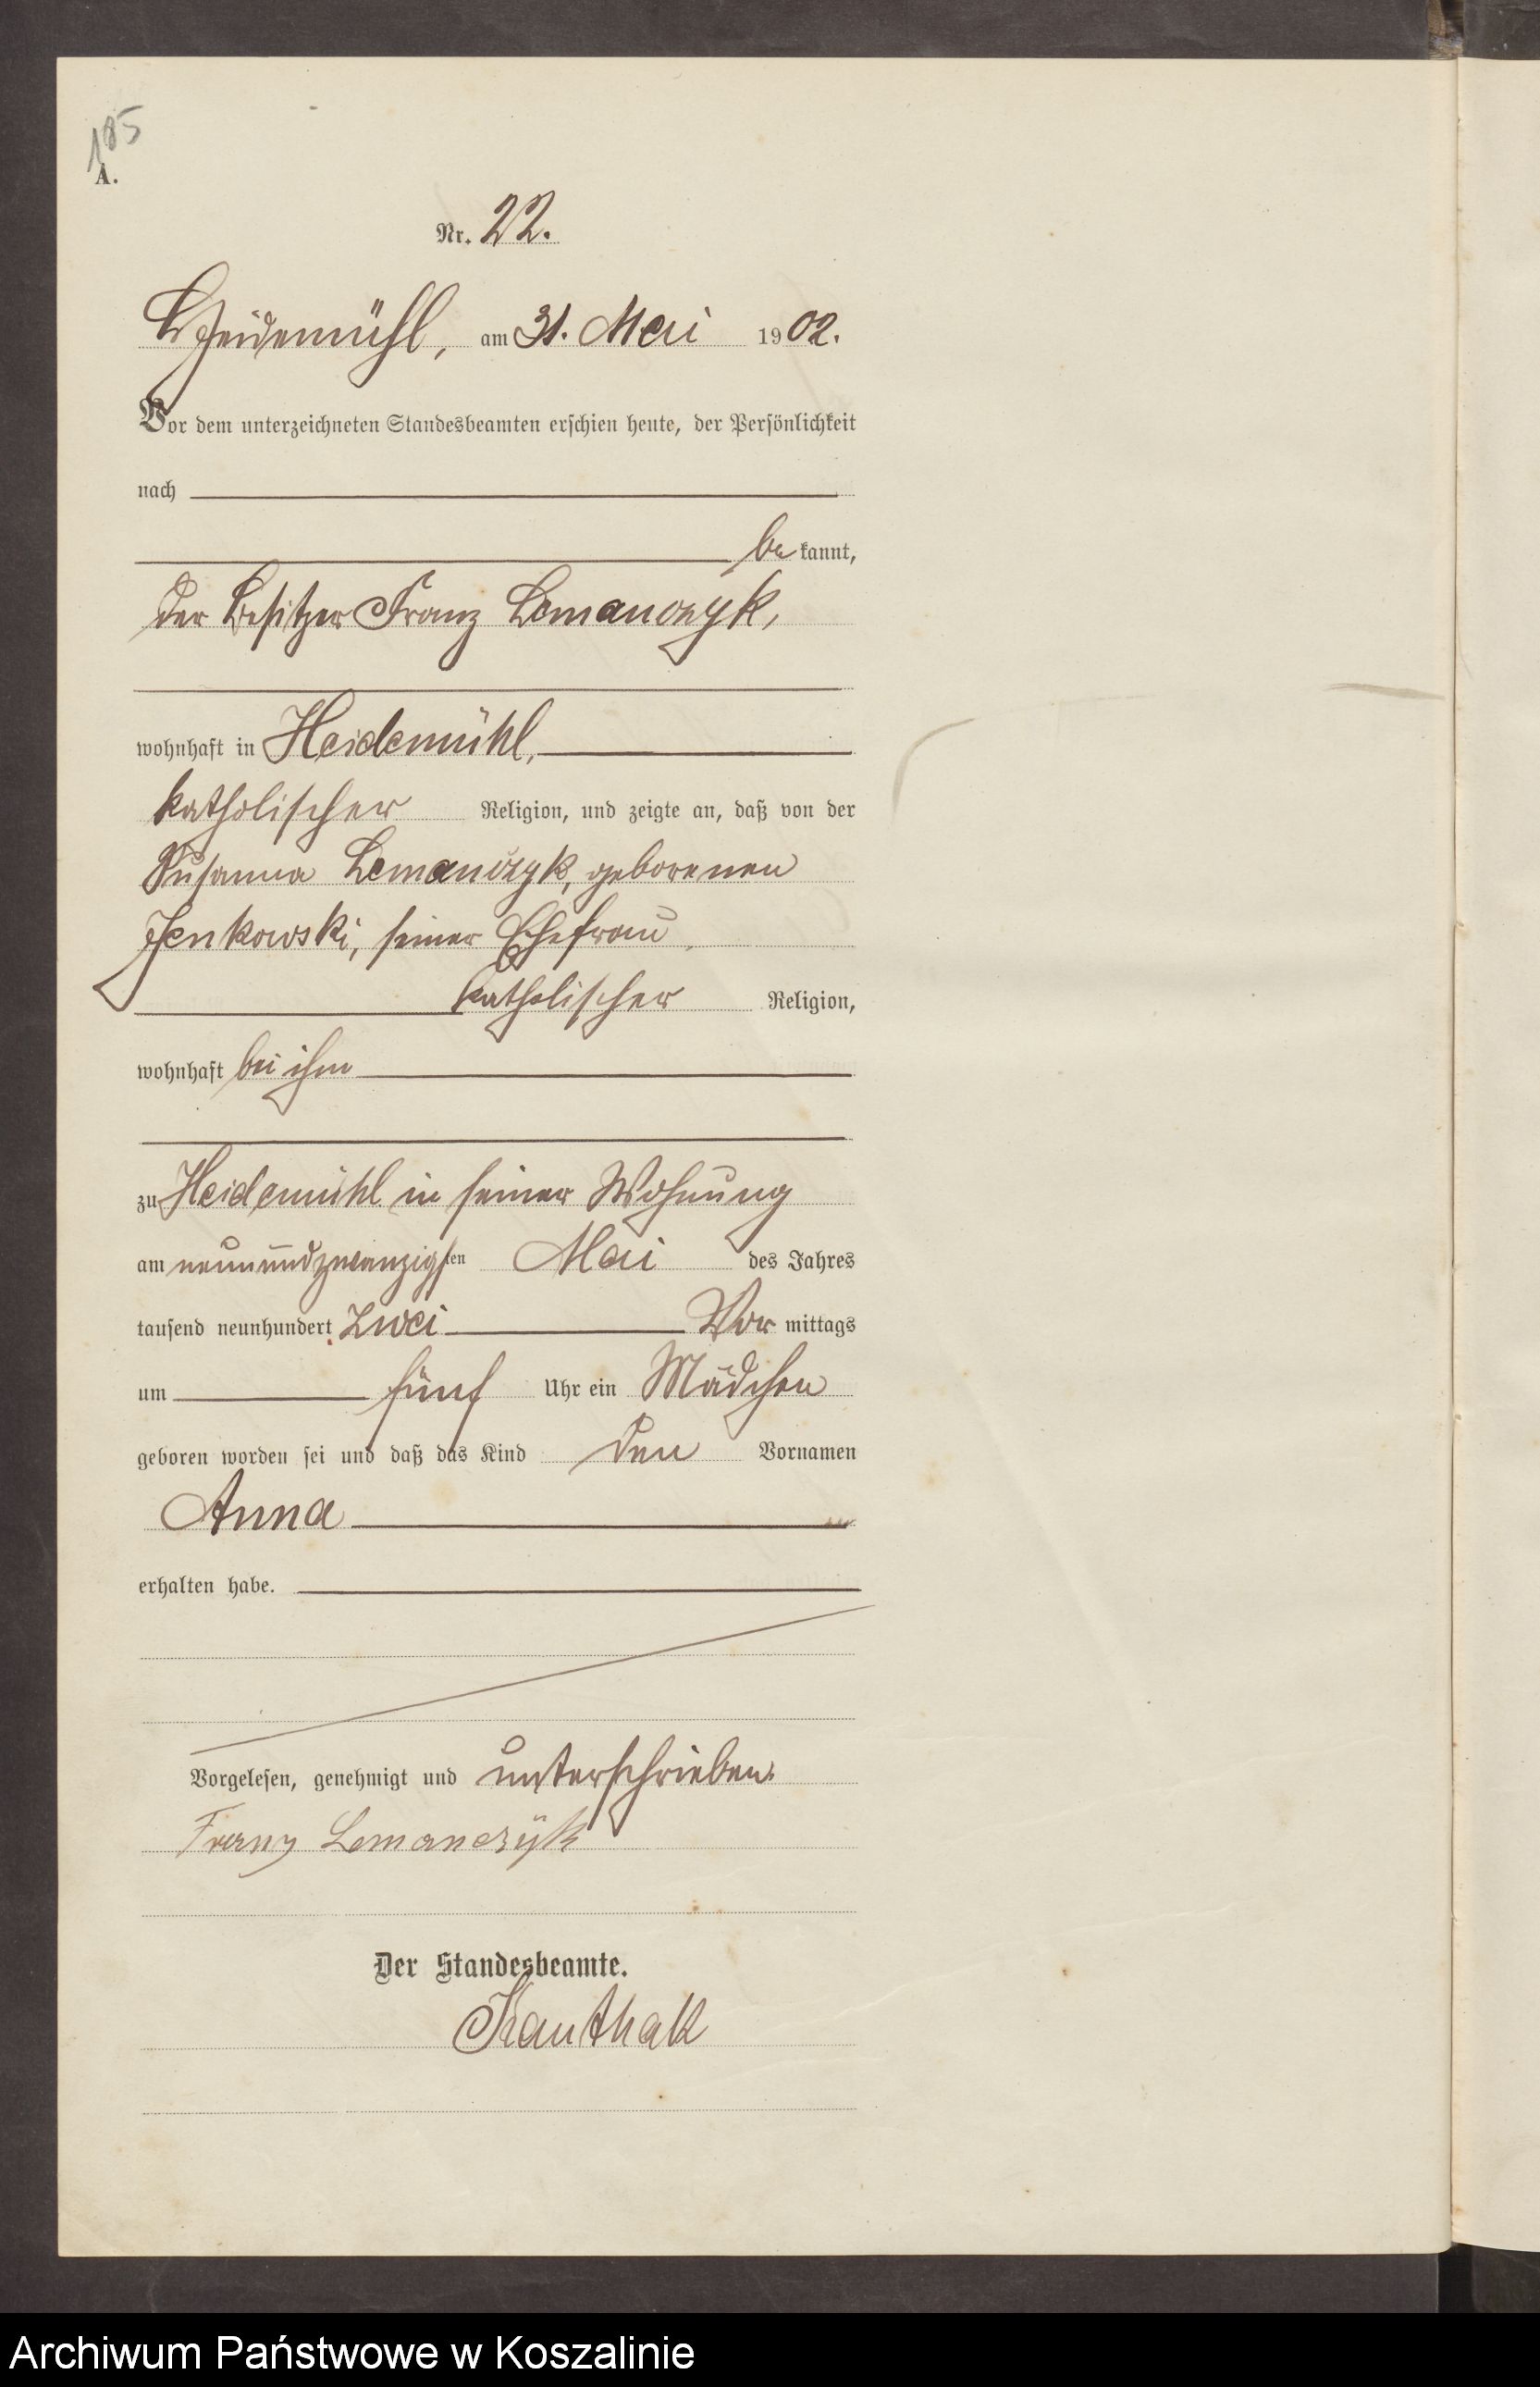 185
A.
Nr. 22.
Heidemühl, am 31. Mai 1902.
Vor dem unterzeichneten Standesbeamten erschien heute, der Persönlichkeit
nach
be kannt,
der Besitzer Franz Lemanczyk,
wohnhaft in Heidemühl,
katholischer Religion, und zeigte an, daß von der
Susanna Lemanczyk, geborenen
Jenkowski, seiner Ehefrau,
katholischer Religion,
wohnhaft bei ihm
zu Heidemühl in seiner Wohnung
am neunundzwanzigsten Mai des Jahres
tausend neunhundert zwei Vor mittags
um fünf Uhr ein Mädchen
geboren worden sei und daß das Kind den Vornamen
Anna
erhalten habe.
Vorgelesen, genehmigt und unterschrieben.
Franz Lemanczyk
Der Standesbeamte.
Kauthak
Archiwum Państwowe w Koszalinie